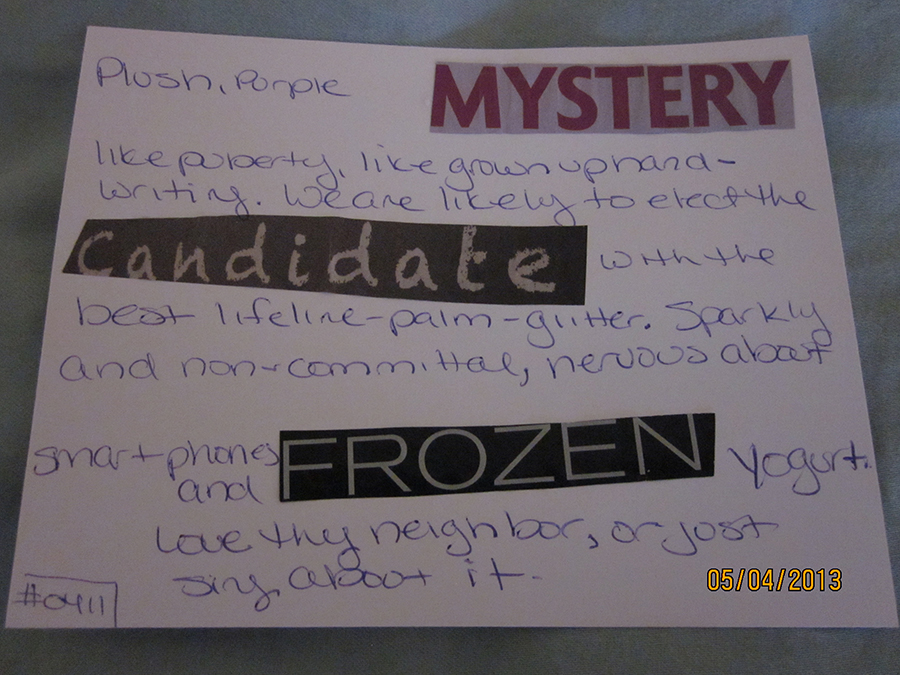 Plush, Purple MYSTERY
like puberty, like grown up hand-
writing. We are likely to elect the
Candidate with the
best lifeline-palm-glitter. Sparkly
and non-committal, nervous about
smart phones FROZEN Yogurt.
and
Love thy neighbor, or just
sing about it.
#0411
05/04/2013